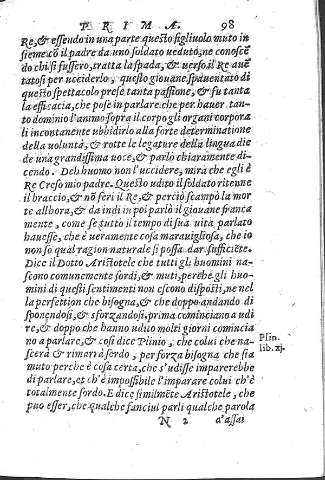 PRIMA. 98
Re, & essendo in una parte questo figliuolo muto in
sieme cō il padre da uno soldato ueduto, ne conoscē
do chi si fussero, tratta la spada, & uerso il Re auē
tatosi per ucciderlo, quello giouane spauentato di
questo spettacolo prese tanta passione, & fu tanta
la efficacia, che pose in parlare che per hauer tan-
to dominio l'animo sopra il corpo gli organi corpora
li incontanente ubbidirlo alla forte determinatione
della uoluntà, & rotte le legature della lingua die
de una grandissima uoce, & parlò chiaramente di-
cendo. Deh buomo non l'uccidere, mira che egli è
Re Creso mio padre. Questo udito il soldato ritenne
il braccio, & nō ferì il Re, & perciò scampò la mor
te allhora, & da indi in poi parlò il giouane franca
mente, come se tutto il tempo di sua uita parlato
hauesse, che è ueramente cosa marauigliosa, che io
non so qual ragion naturale si possa dar sufficiēte.
Dice il Dotto Aristotele che tutti gli huomini na-
scono comunemente sordi, & muti, perche gli huo-
mini di questi sentimenti non escono disposti, ne nel
la perfettion che bisogna, & che doppo andando di
sponendosi, & sforzandosi, prima cominciano a udi
re, & doppo che hanno udito molti giorni comincia
no a parlare, & così dice Plinio, che colui che na-
scerà & rimarrà sordo, per forza bisogna che sia
muto perche è cosa certa, che s'udisse imparerebbe
di parlare, et ch'è impossibile l'imparare colui ch'è
totalmente sordo. E dice similmēte Aristotele, che
puo esser, che qualche fanciul parli qualche parola
Plin.
lib. xj.
N 2 d'assai